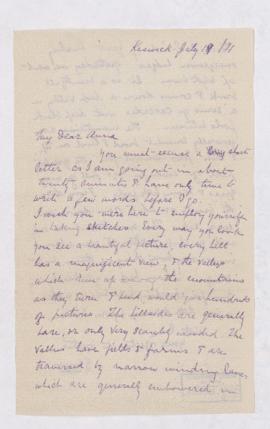 Keswick July 19 /71
My Dear Anna
You must excuse a very short
letter as I am going out in about
twenty minutes & have only time to
write a few words before I go.
I wish you were here to employ yourself
in taking sketches every way you look
you see a beautiful picture, every hill
has a magnificent view, & the valleys
which run up among the mountains
as they turn & bend would give hundreds
of pictures. The hillsides are generally
bare, or only very scantily wooded. The
vallies have fields & farms & are
traversed by narrow winding lanes,
which are generally embowered in